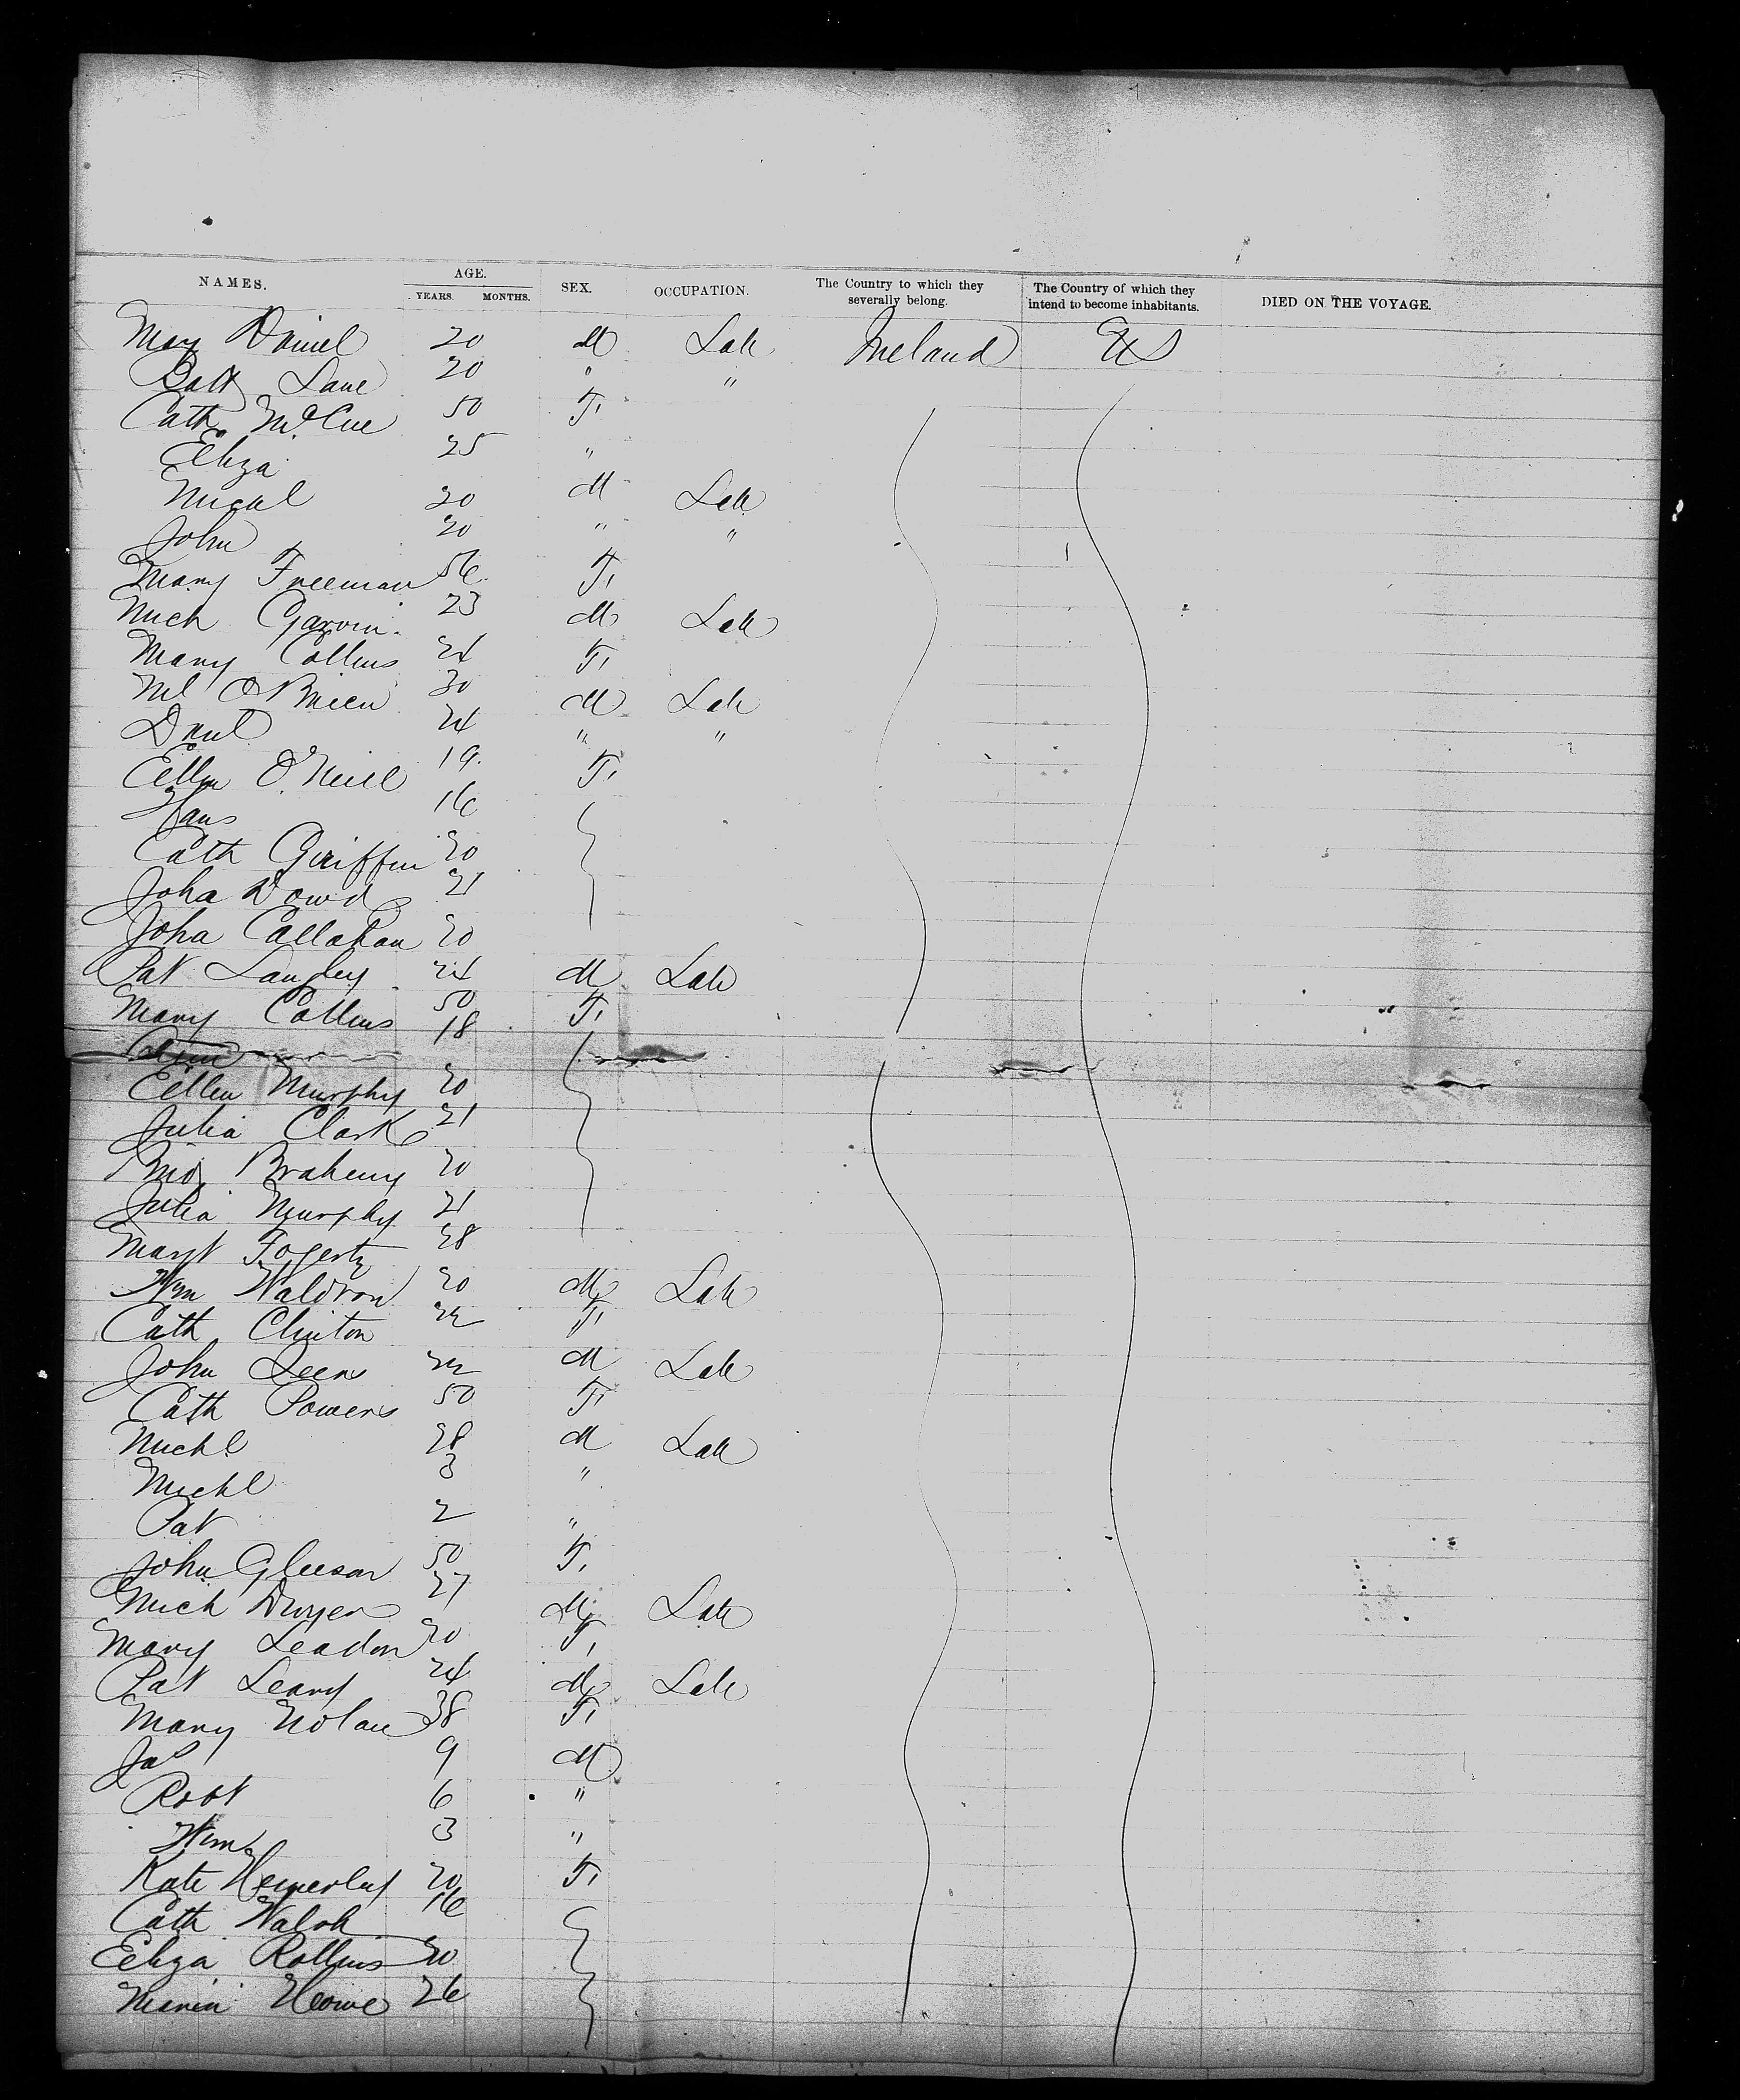 NAMES. AGE. YEARS. MONTHS. SEX. OCCUPATION. The Country to which they severally belong. The Country of which they intend to become inhabitants. DIED ON THE VOYAGE.
Daniel 20 M Lab Ireland US
Batt Lane 20 " "
Cath McCue 50 F
Eliza 25 "
Michl 20 M Lab
John 20 " "
Mary Freeman 56 F
Mich Garvin 23 M Lab
Mary Collins 24 F
Ml O'Brien 30 M Lab
Danl 24 " "
Ellen O'Neill 19 F
16
Cath Griffin 20
Joha Dowd 21
Joha Callahan 20
Pat Langley 24 M Lab
Mary Collins 50 F
Ann 18
Ellen Murphy 20
Julia Clark 21
Brid 20
Julia Murphy 21
Margt Fogerty 28
Wm Waldron 20 M Lab
Cath Clinton 22 F
John 22 M Lab
Cath Powers 50 F
Michl 28 M Lab
Michl 3 "
Pat 2 "
Gleeson 50 F
Mich Dwyer 27 M Lab
Mary Leadon 20 F
Pat Leary 24 M Lab
Mary Nolan 38 F
Jas 9 M
Robt 6 "
Wm 3 "
Kate 20 F
Cath Walsh 16
Eliza Rollins 20
Maria Howe 26